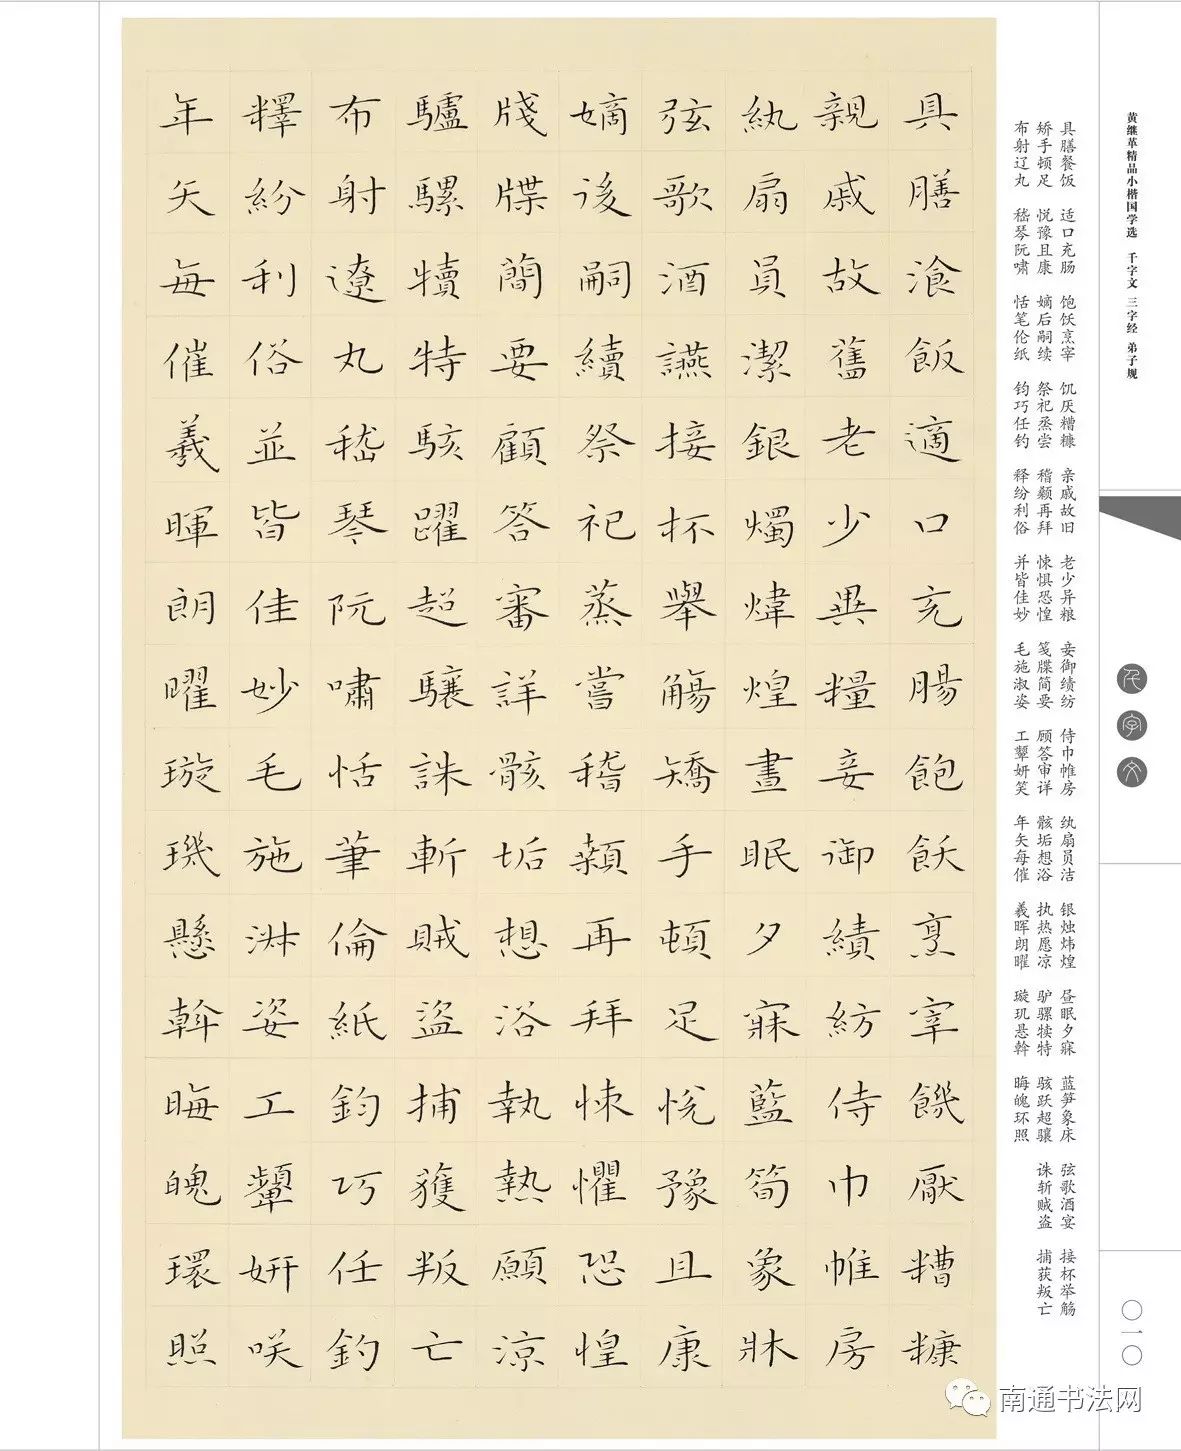 黄继革精品小楷国学选 千字文 三字经 弟子规
千字文
〇一〇
具膳餐饭 适口充肠 饱饫烹宰 饥厌糟糠 亲戚故旧 老少异粮 妾御绩纺 侍巾帷房 纨扇员洁 银烛炜煌 昼眠夕寐 蓝笋象床 弦歌酒宴 接杯举觞
矫手顿足 悦豫且康 嫡后嗣续 祭祀丞尝 稽颡再拜 悚惧恐惶 笺牒简要 顾答审详 骸垢想浴 执热愿凉 驴骡犊特 骇跃超骧 诛斩贼盗 捕获叛亡
布射辽丸 嵇琴阮啸 恬笔伦纸 钧巧任钓 释纷利俗 并皆佳妙 毛施淑姿 工颦妍笑 年矢每催 羲晖朗曜 璇玑悬斡 晦魄环照
具膳飡飯適口充腸飽飫烹宰饑厭糟糠
親戚故舊老少異糧妾御績紡侍巾帷房
紈扇員潔銀燭煒煌晝眠夕寐藍筍象牀
弦歌酒讌接杯舉觴矯手頓足悅豫且康
嫡後嗣續祭祀蒸嘗稽顙再拜悚懼恐惶
牋牒簡要顧答審詳骸垢想浴執熱願涼
驢騾犢特駭躍超驤誅斬賊盜捕獲叛亡
布射遼丸嵇琴阮嘯恬筆倫紙鈞巧任釣
釋紛利俗並皆佳妙毛施淑姿工顰妍咲
年矢每催羲暉朗曜璇璣懸斡晦魄環照
南通书法网